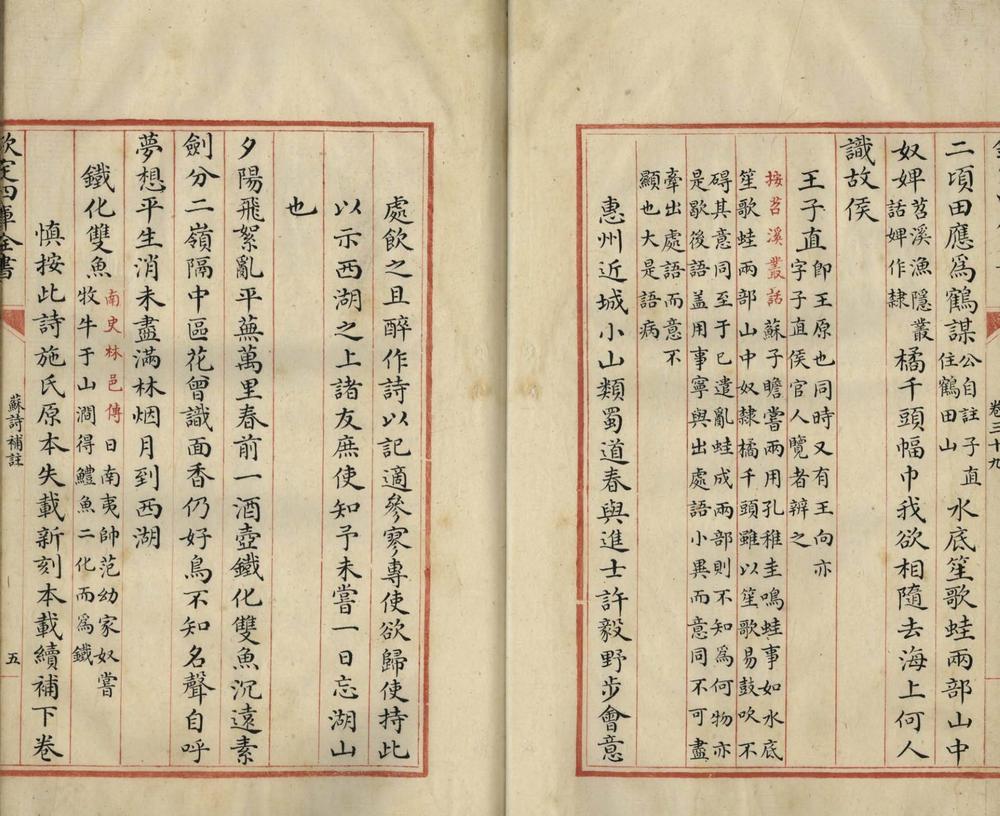 卷三十九
二頃田應為鶴謀公自註子直
住鶴田山水底笙歌蛙兩部山中
奴婢苕溪漁隱叢
話婢作隸橘千頭幅巾我欲相隨去海上何人
識故侯
王子直即王原也同時又有王向亦
字子直侯官人覽者辨之
按苕溪叢話蘇子瞻嘗兩用孔稚圭鳴蛙事如水底
笙歌蛙兩部山中奴隸橘千頭雖以笙歌易鼓吹不
礙其意同至于已遣亂蛙成兩部則不知為何物亦
是歇後語盖用事寧與出處語小異而意同不可盡
牽出處語而意不
顯也大是語病
惠州近城小山類蜀道春與進士許毅野步會意
處飲之且醉作詩以記適參寥專使欲歸使持此
以示西湖之上諸友庶使知予未嘗一日忘湖山
也
夕陽飛絮亂平蕪萬里春前一酒壺鐵化雙魚沉遠素
劍分二嶺隔中區花曾識面香仍好鳥不知名聲自呼
夢想平生消未盡滿林烟月到西湖
鐵化雙魚南史林邑傳日南夷帥范幼家奴嘗
牧牛于山澗得鱧魚二化而為鐵
慎按此詩施氏原本失載新刻本載續補下卷
欽定四庫全書
蘇詩補註
五